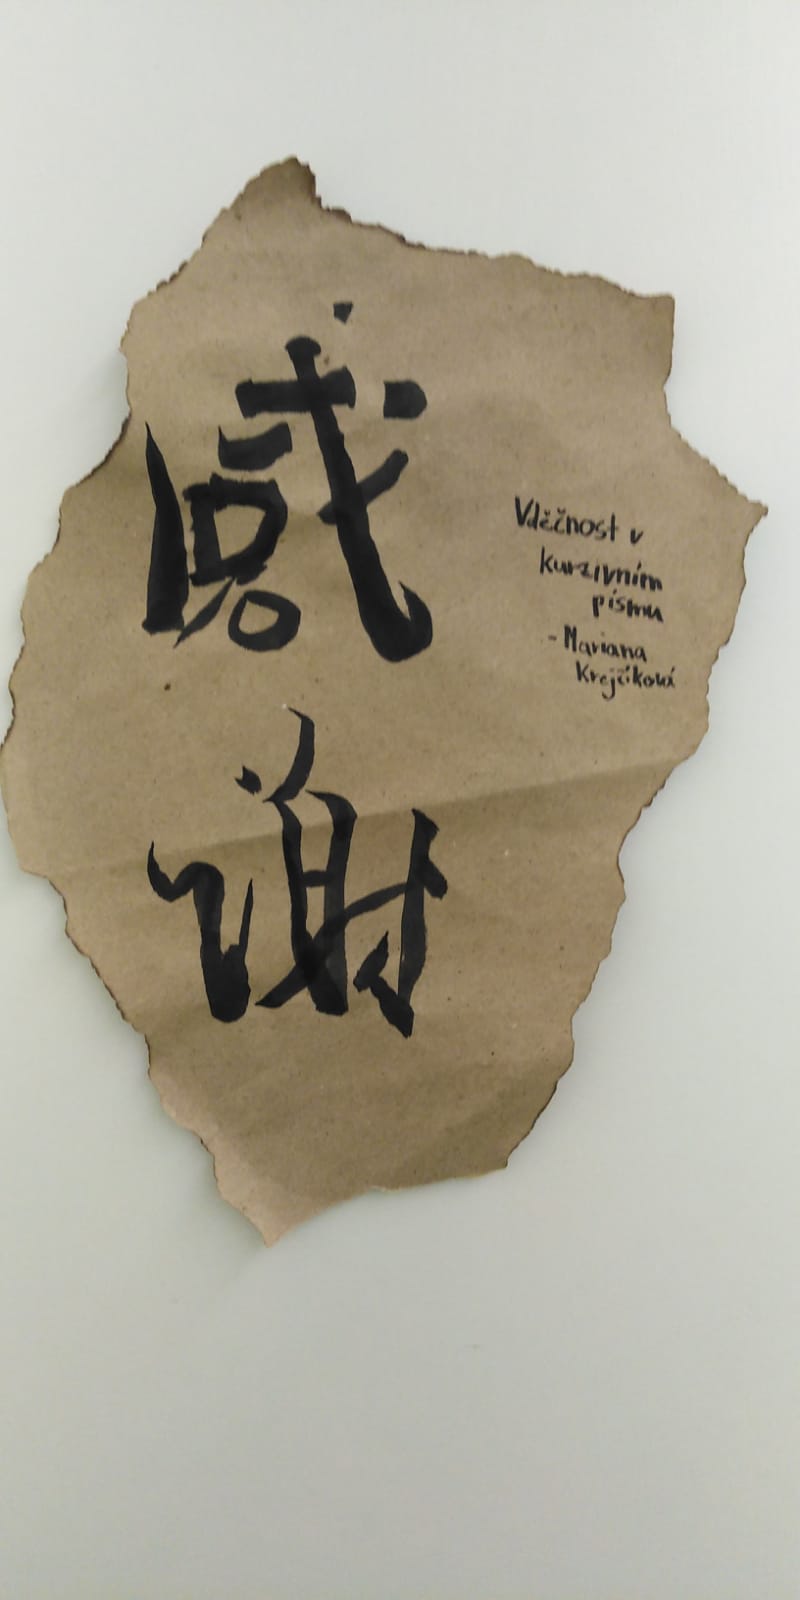 感
謝
Vděčnost v
kurzivním
písmu
- Mariana
Krejčíková